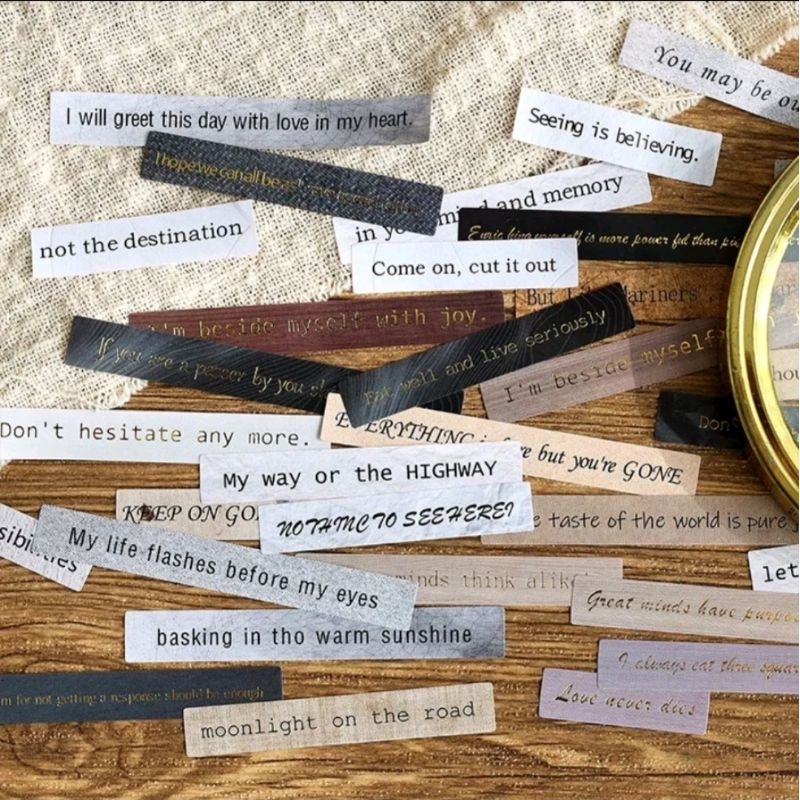 You may be
I will greet this day with love in my heart.
Seeing is believing.
I hope we can all be
in your mind and memory
not the destination
Enriching yourself is more power ful than
Come on, cut it out
But Mariners
I'm beside myself with joy.
If you are a passer by you
Eat well and live seriously
I'm beside myself
Don't hesitate any more.
EVERYTHING is here but you're GONE
My way or the HIGHWAY
KEEP ON
NOTHINC TO SEE HERE!
taste of the world is pure
My life flashes before my eyes
minds think alike
let
Great minds have
basking in tho warm sunshine
I always eat three
m for not getting a response should be enough
Love never dies
moonlight on the road